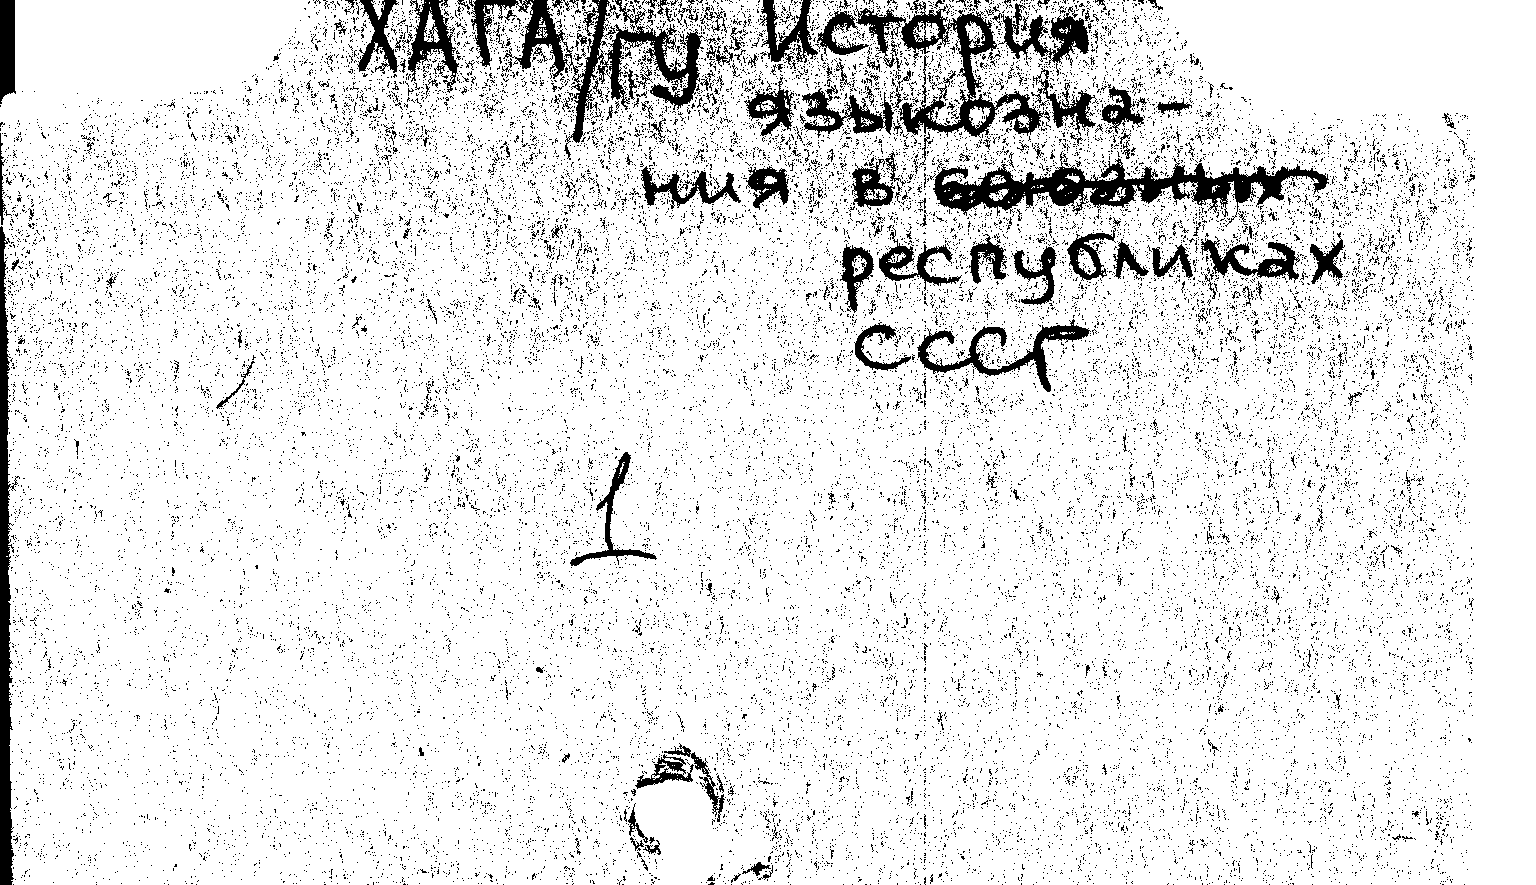 ХАГА/гу История
языкозна-
ния в союзных
республиках
СССР
1